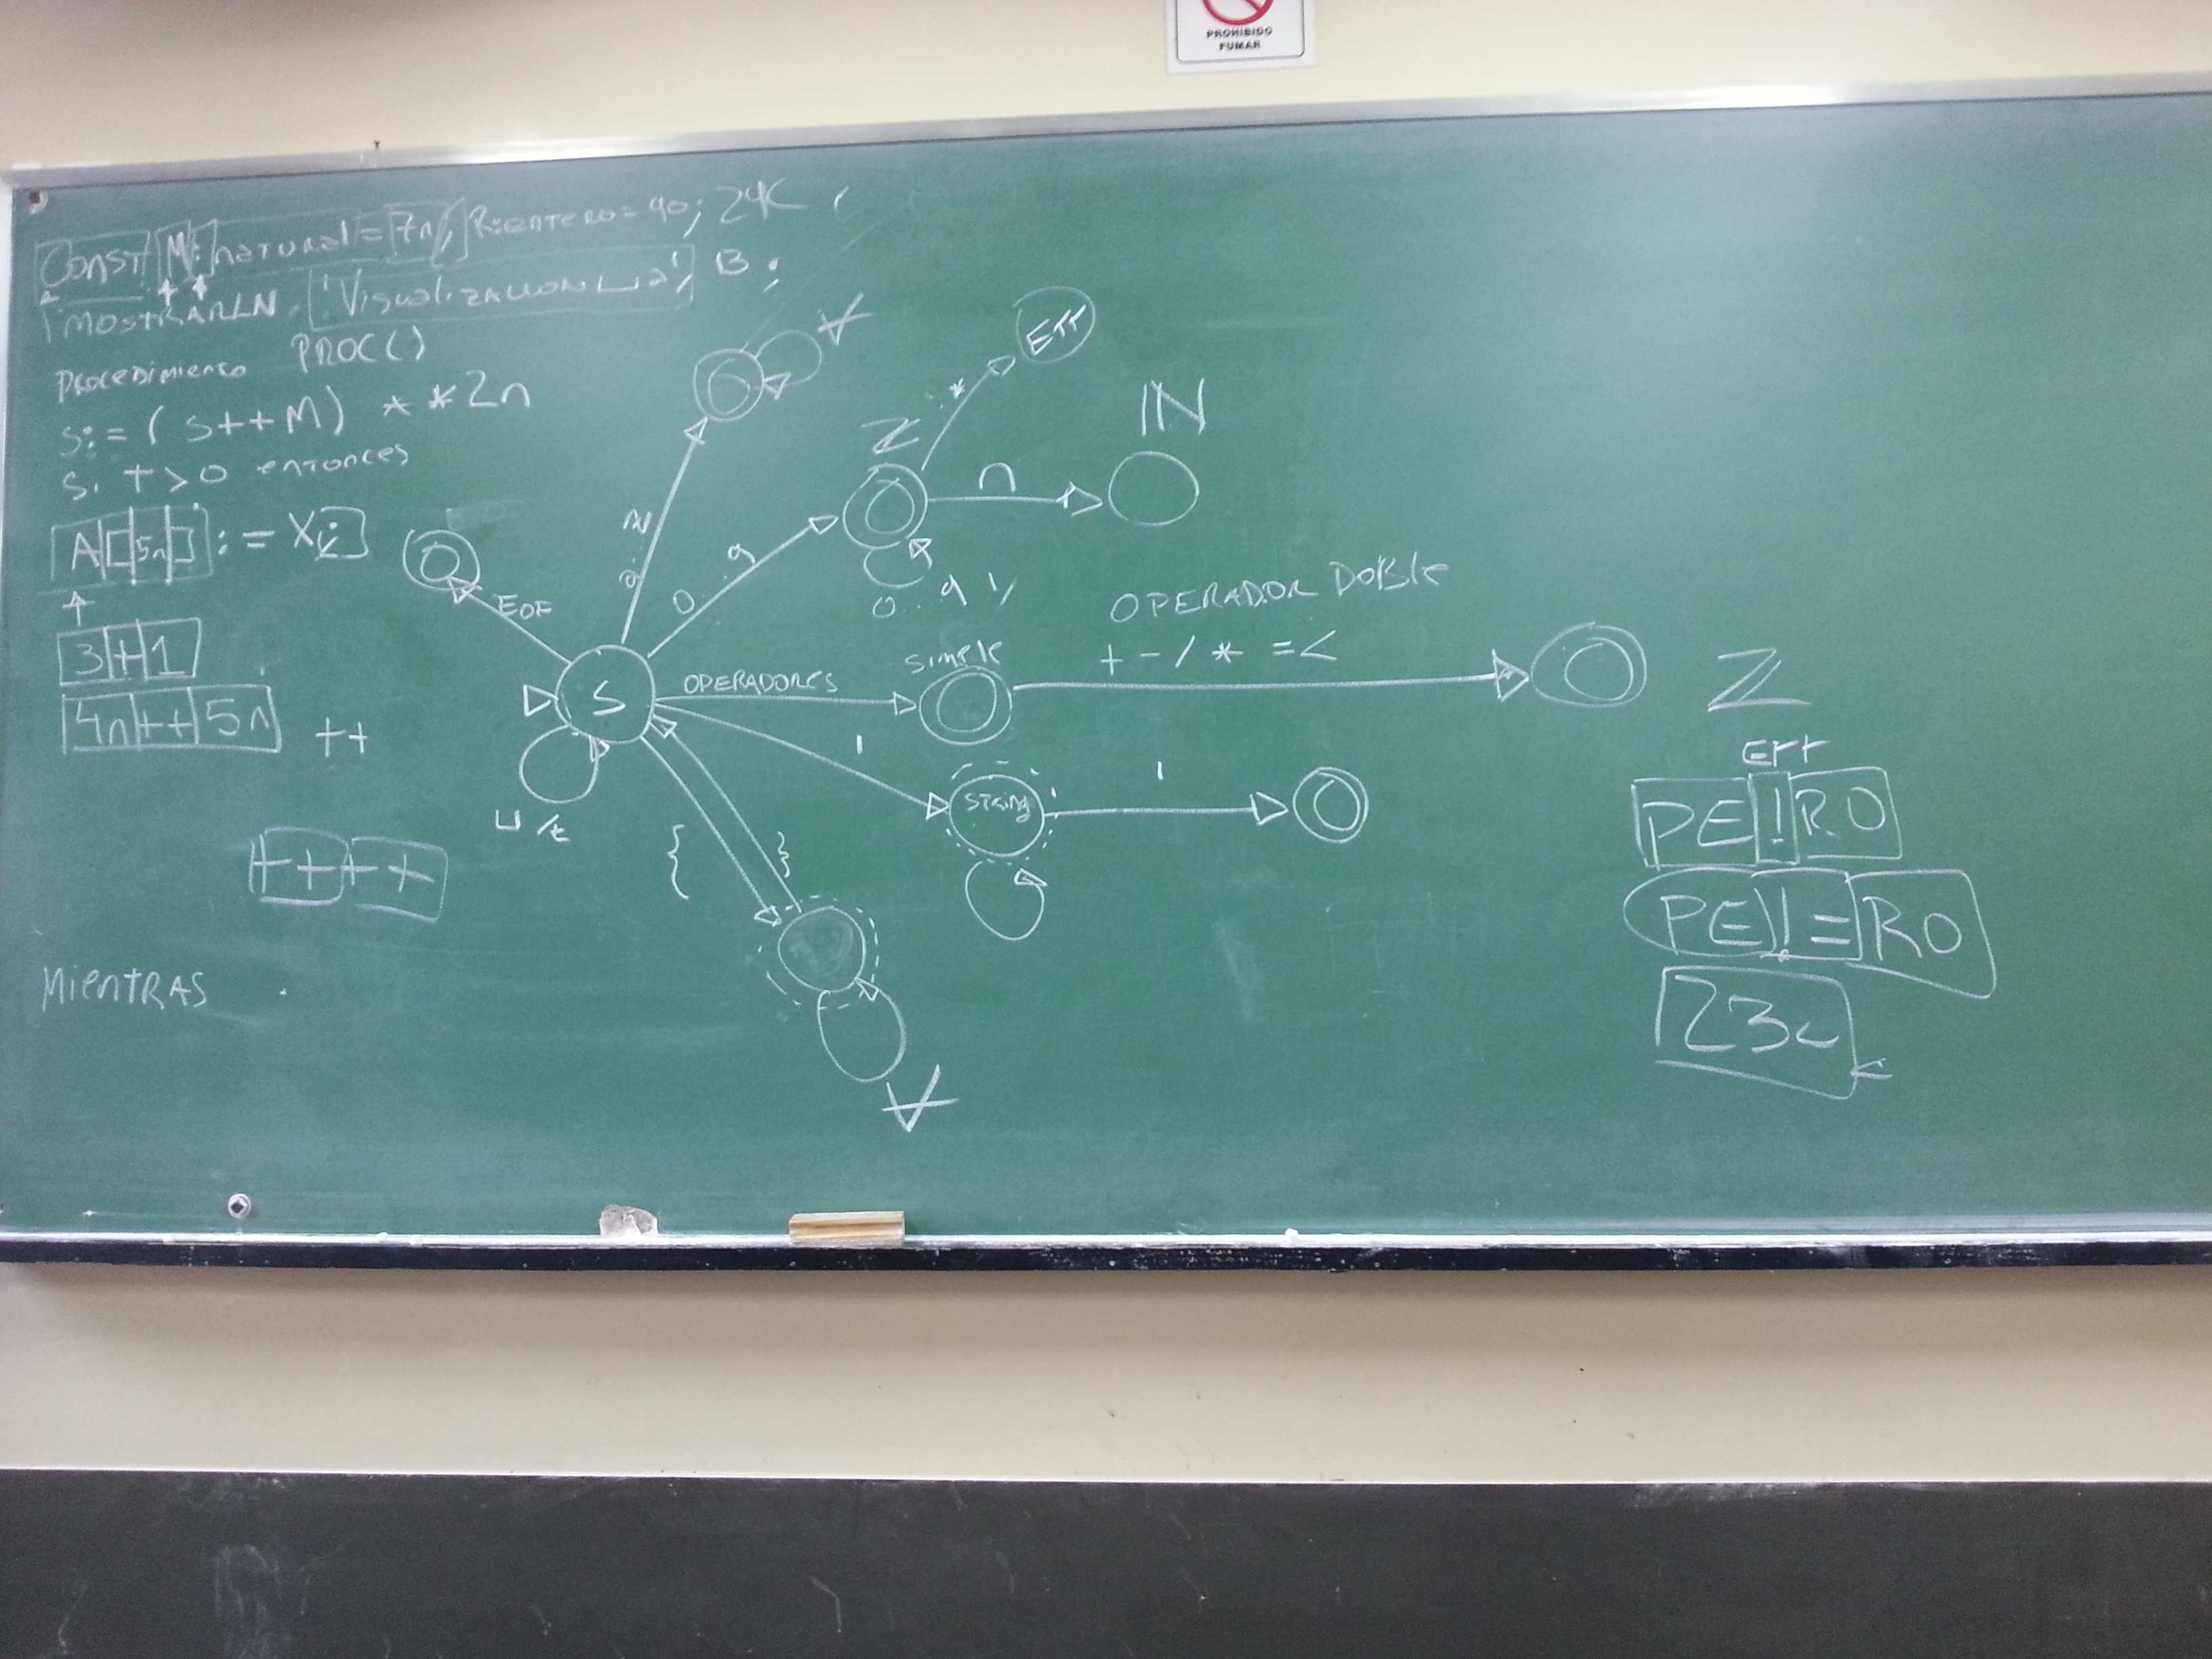 PROHIBIDO
FUMAR
CONST M: natural = 7n, R:entero = 90; 24K
MOSTRARLN 'Visualizacion␣a', B;
Procedimiento PROC()
S:=(S++M) **2n
Si T>0 entonces
A[5n] := X
3+1
4n++5n
++
++++
Mientras
S
EOF
a..z
∀
0..9
Z
0..9
n
IN
Err
OPERADORES
Simple
OPERADOR DOBle
+ - / * = <
Z
'
String
'
{
}
∀
Err
PE!RO
PE!=RO